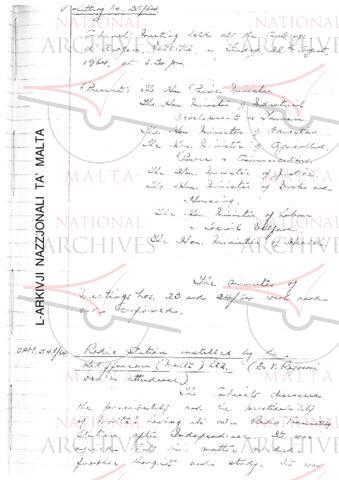 Meeting No. 25/64
Cabinet Meeting held at the Auberge
d'Aragon, Valletta, on
1964, at 6.30 pm.
Present: The Hon. Prime Minister
The Hon. Minister of Industrial
Development & Tourism
The Hon. Minister of Education
The Hon. Minister of Agriculture,
Power & Communications
The Hon. Minister of Justice
The Hon. Minister of Works and
Housing
The Hon. Minister of Labour
& Social Welfare
The Hon. Minister of Health
The minutes of
Meetings Nos. 23 and 24/64 were read
and confirmed.
OPM.
Radio Station installed by the
Rediffusion (Malta) Ltd.
was in attendance)
The Cabinet discussed
the possibility and the practicability
of Malta having its own Radio
Station after Independence. It was
agreed that this matter needed
further thought and study. It was
L-ARKIVJI NAZZJONALI TA' MALTA
NATIONAL
MALTA
ARCHIVES